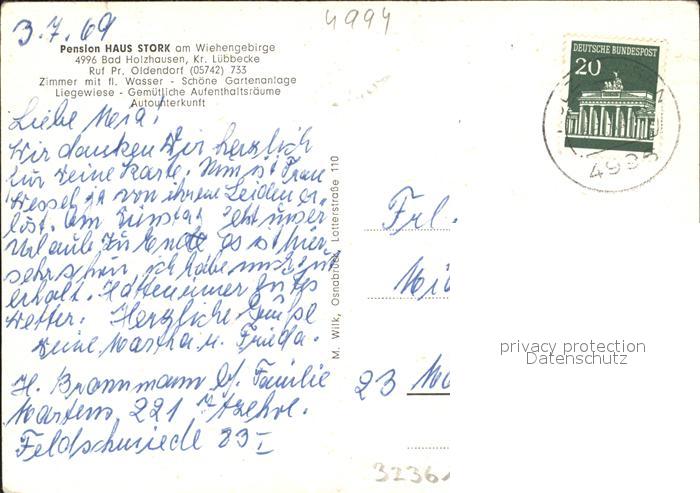 3.7.69
4994
Pension HAUS STORK am Wiehengebirge
4996 Bad Holzhausen, Kr. Lübbecke
Ruf Pr. Oldendorf (05742) 733
Zimmer mit fl. Wasser - Schöne Gartenanlage
Liegewiese - Gemütliche Aufenthaltsräume
Autounterkunft
Liebe
Wir danken Dir herzlich
für Deine Karte. Nun ist Frau
Wessel ja von ihrem Leiden er-
löst. Am Dienstag geht unser
Urlaub zu Ende es ist hier
sehr schön, ich habe mich gut
erholt. Hatten immer gutes
Wetter. Herzliche Grüße
Deine Martha u. Frieda.
H. Brammann b/. Familie
Martens 221 Itzehoe.
Feldschmiede 83 I
M. Wilk, Osnabrück, Lotterstraße 110
DEUTSCHE BUNDESPOST
20
Frl.
23
3236
privacy protection
Datenschutz